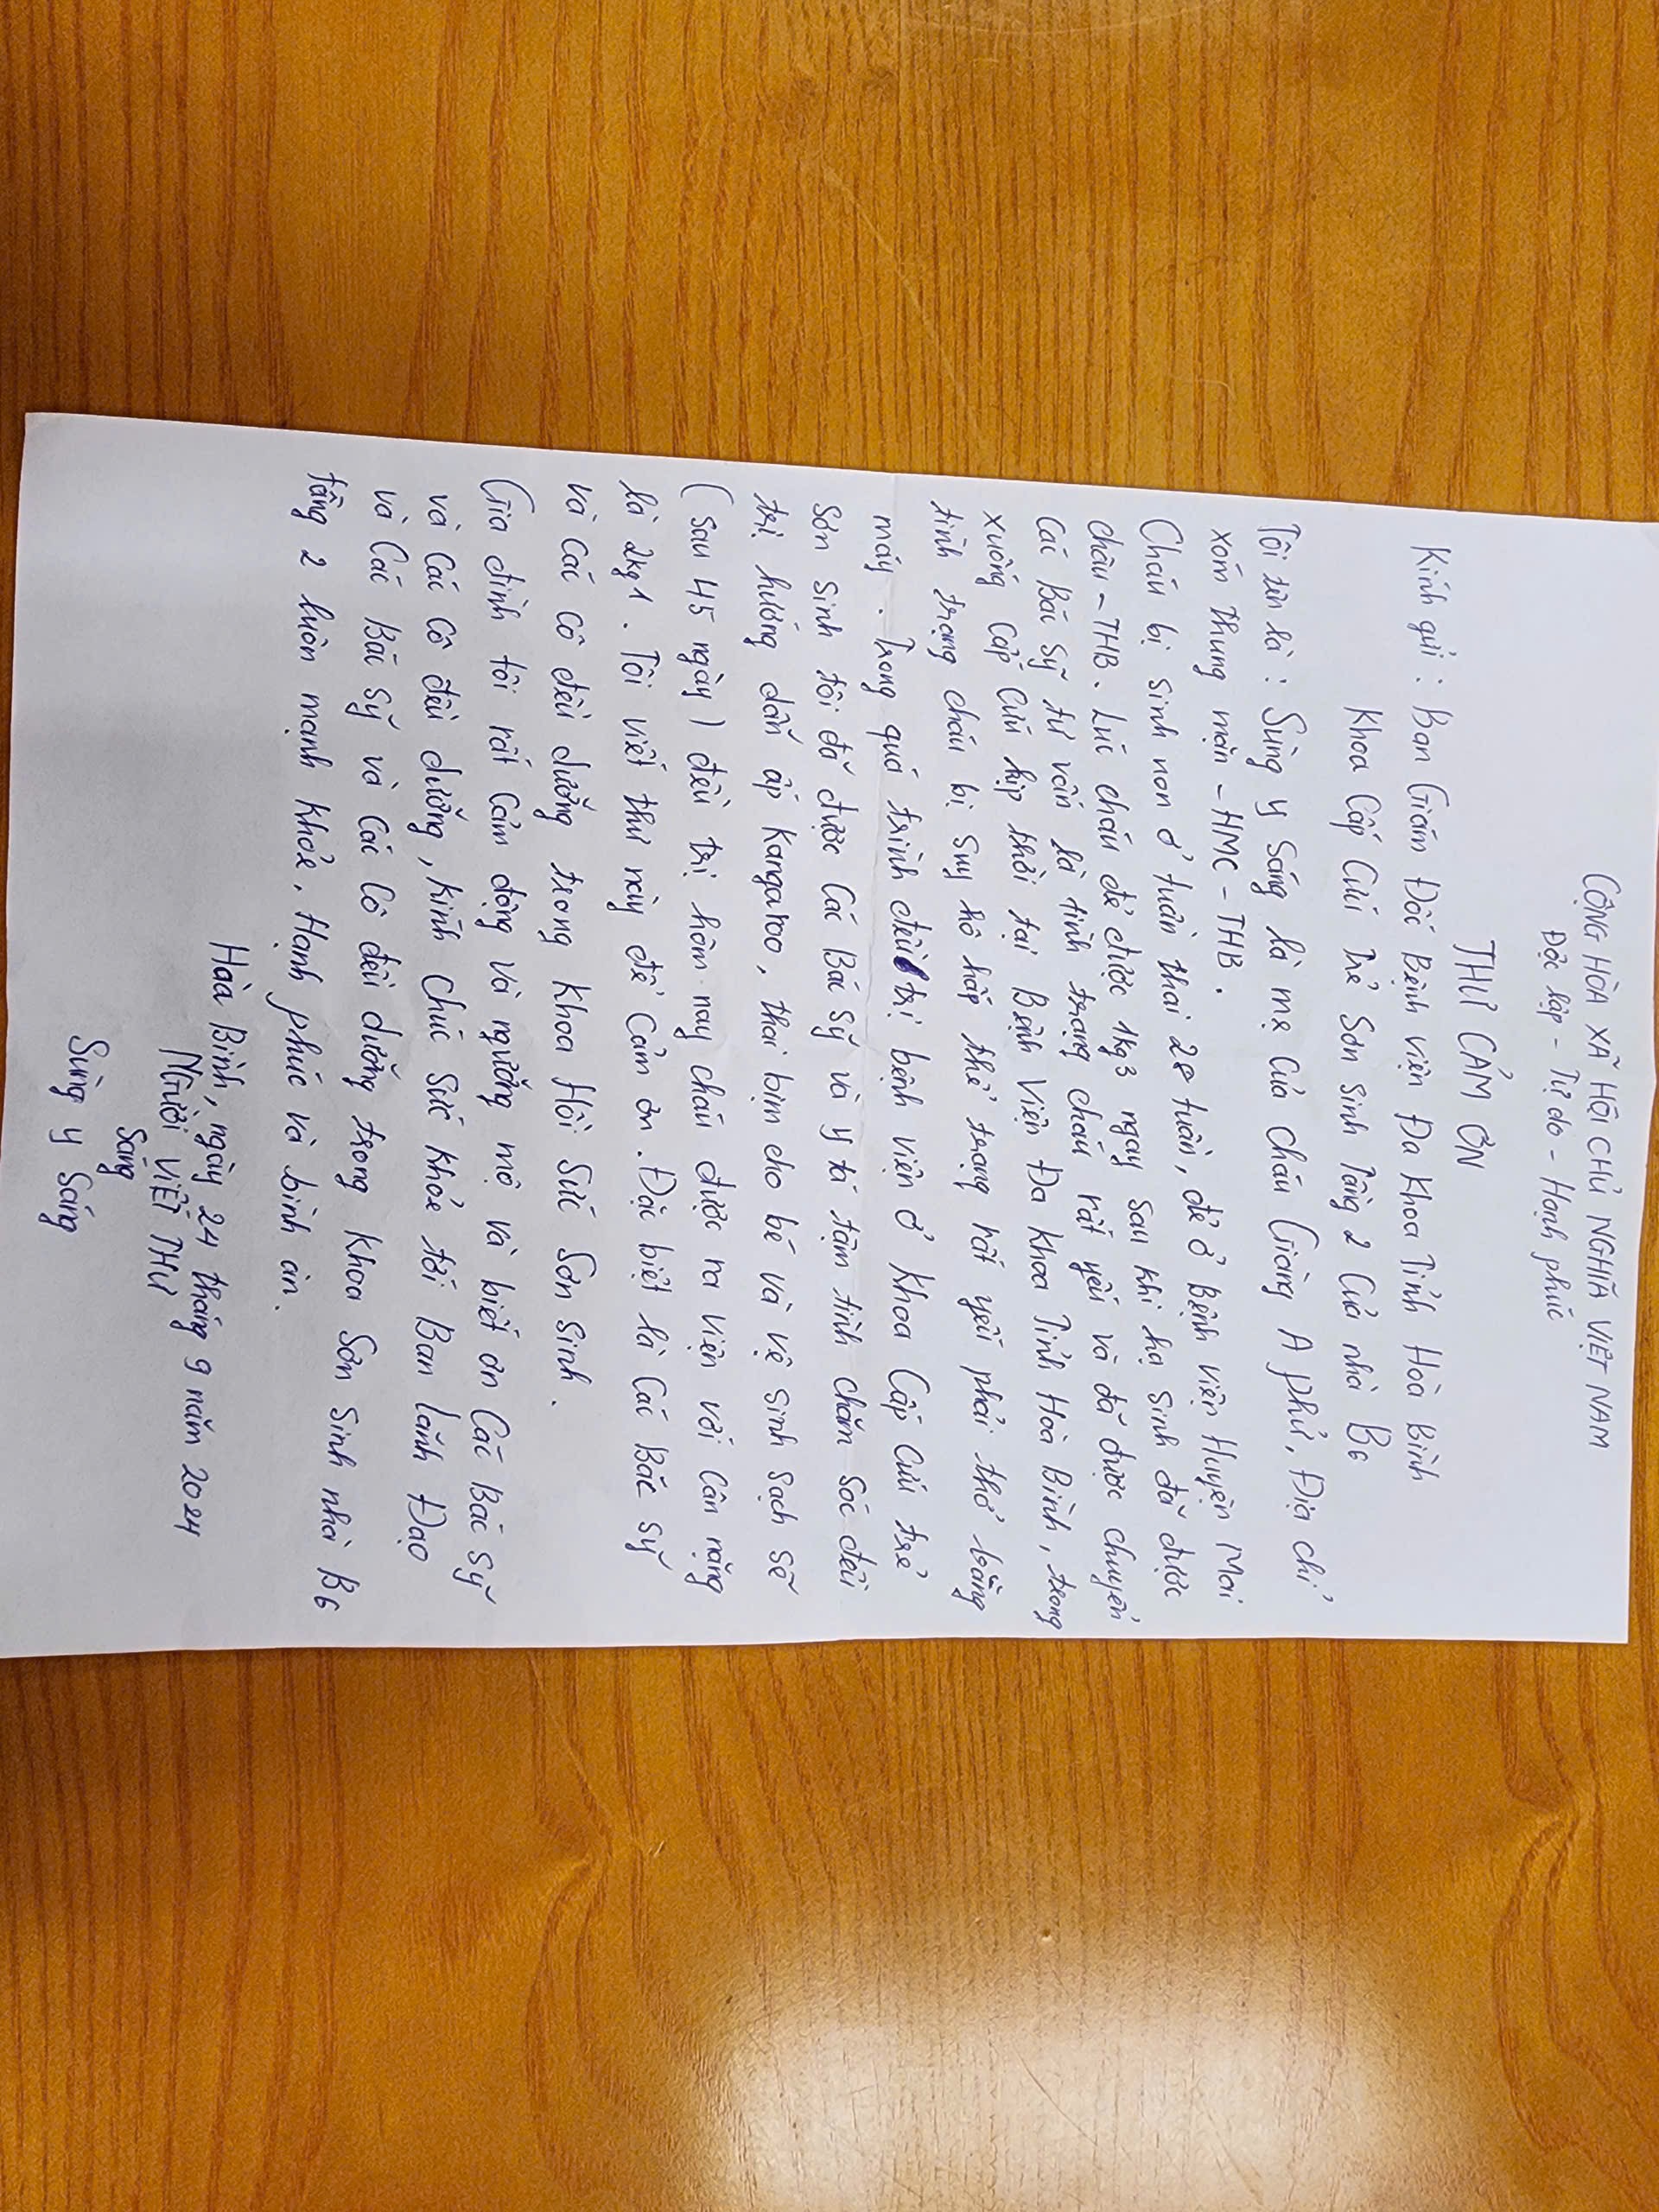 CỘNG HÒA XÃ HỘI CHỦ NGHĨA VIỆT NAM
Độc lập - Tự do - Hạnh phúc
THƯ CẢM ƠN
Kính gửi : Ban Giám Đốc Bệnh viện Đa Khoa Tỉnh Hòa Bình
Khoa Cấp Cứu Trẻ Sơn Sinh Tầng 2 Của nhà B6
Tôi tên là : Sùng Y Sáng là mẹ của cháu Giàng A Phử, Địa chỉ
xóm Thung mặn - HMC - THB.
Cháu bị sinh non ở tuần thai 28 tuần, đẻ ở Bệnh viện Huyện Mai
châu - THB. Lúc cháu đẻ được 1kg3 ngay sau khi hạ sinh đã được
Các Bác Sỹ tư vấn là tình trạng cháu rất yếu và đã được chuyển
xuống Cấp Cứu kịp thời tại Bệnh Viện Đa khoa Tỉnh Hoà Bình, trong
tình trạng cháu bị suy hô hấp thể trạng rất yếu phải thở bằng
máy. Trong quá trình điều trị bệnh viện ở Khoa Cấp Cứu trẻ
Sơn sinh tôi đã được Các Bác Sỹ và y tá tận tình chăm sóc điều
trị hướng dẫn ấp Kangaroo, thai bỉm cho bé và vệ sinh sạch sẽ
(sau 45 ngày) điều trị hôm nay cháu được ra viện với Cân nặng
là 2kg1. Tôi viết thư này để Cảm ơn. Đặc biệt là Các Bác sỹ
và Các Cô điều dưỡng trong Khoa Hồi Sức Sơn Sinh.
Gia đình tôi rất Cảm động và ngưỡng mộ và biết ơn Các Bác Sỹ
và Các Cô điều dưỡng, kính Chúc Sức Khỏe tới Ban Lãnh Đạo
và Các Bác Sỹ và Các Cô điều dưỡng trong Khoa Sơn Sinh nhà B6
tầng 2 luôn mạnh khỏe, Hạnh phúc và bình an.
Hòa Bình, ngày 24 tháng 9 năm 2024
NGƯỜI VIẾT THƯ
Sáng
Sùng Y Sáng